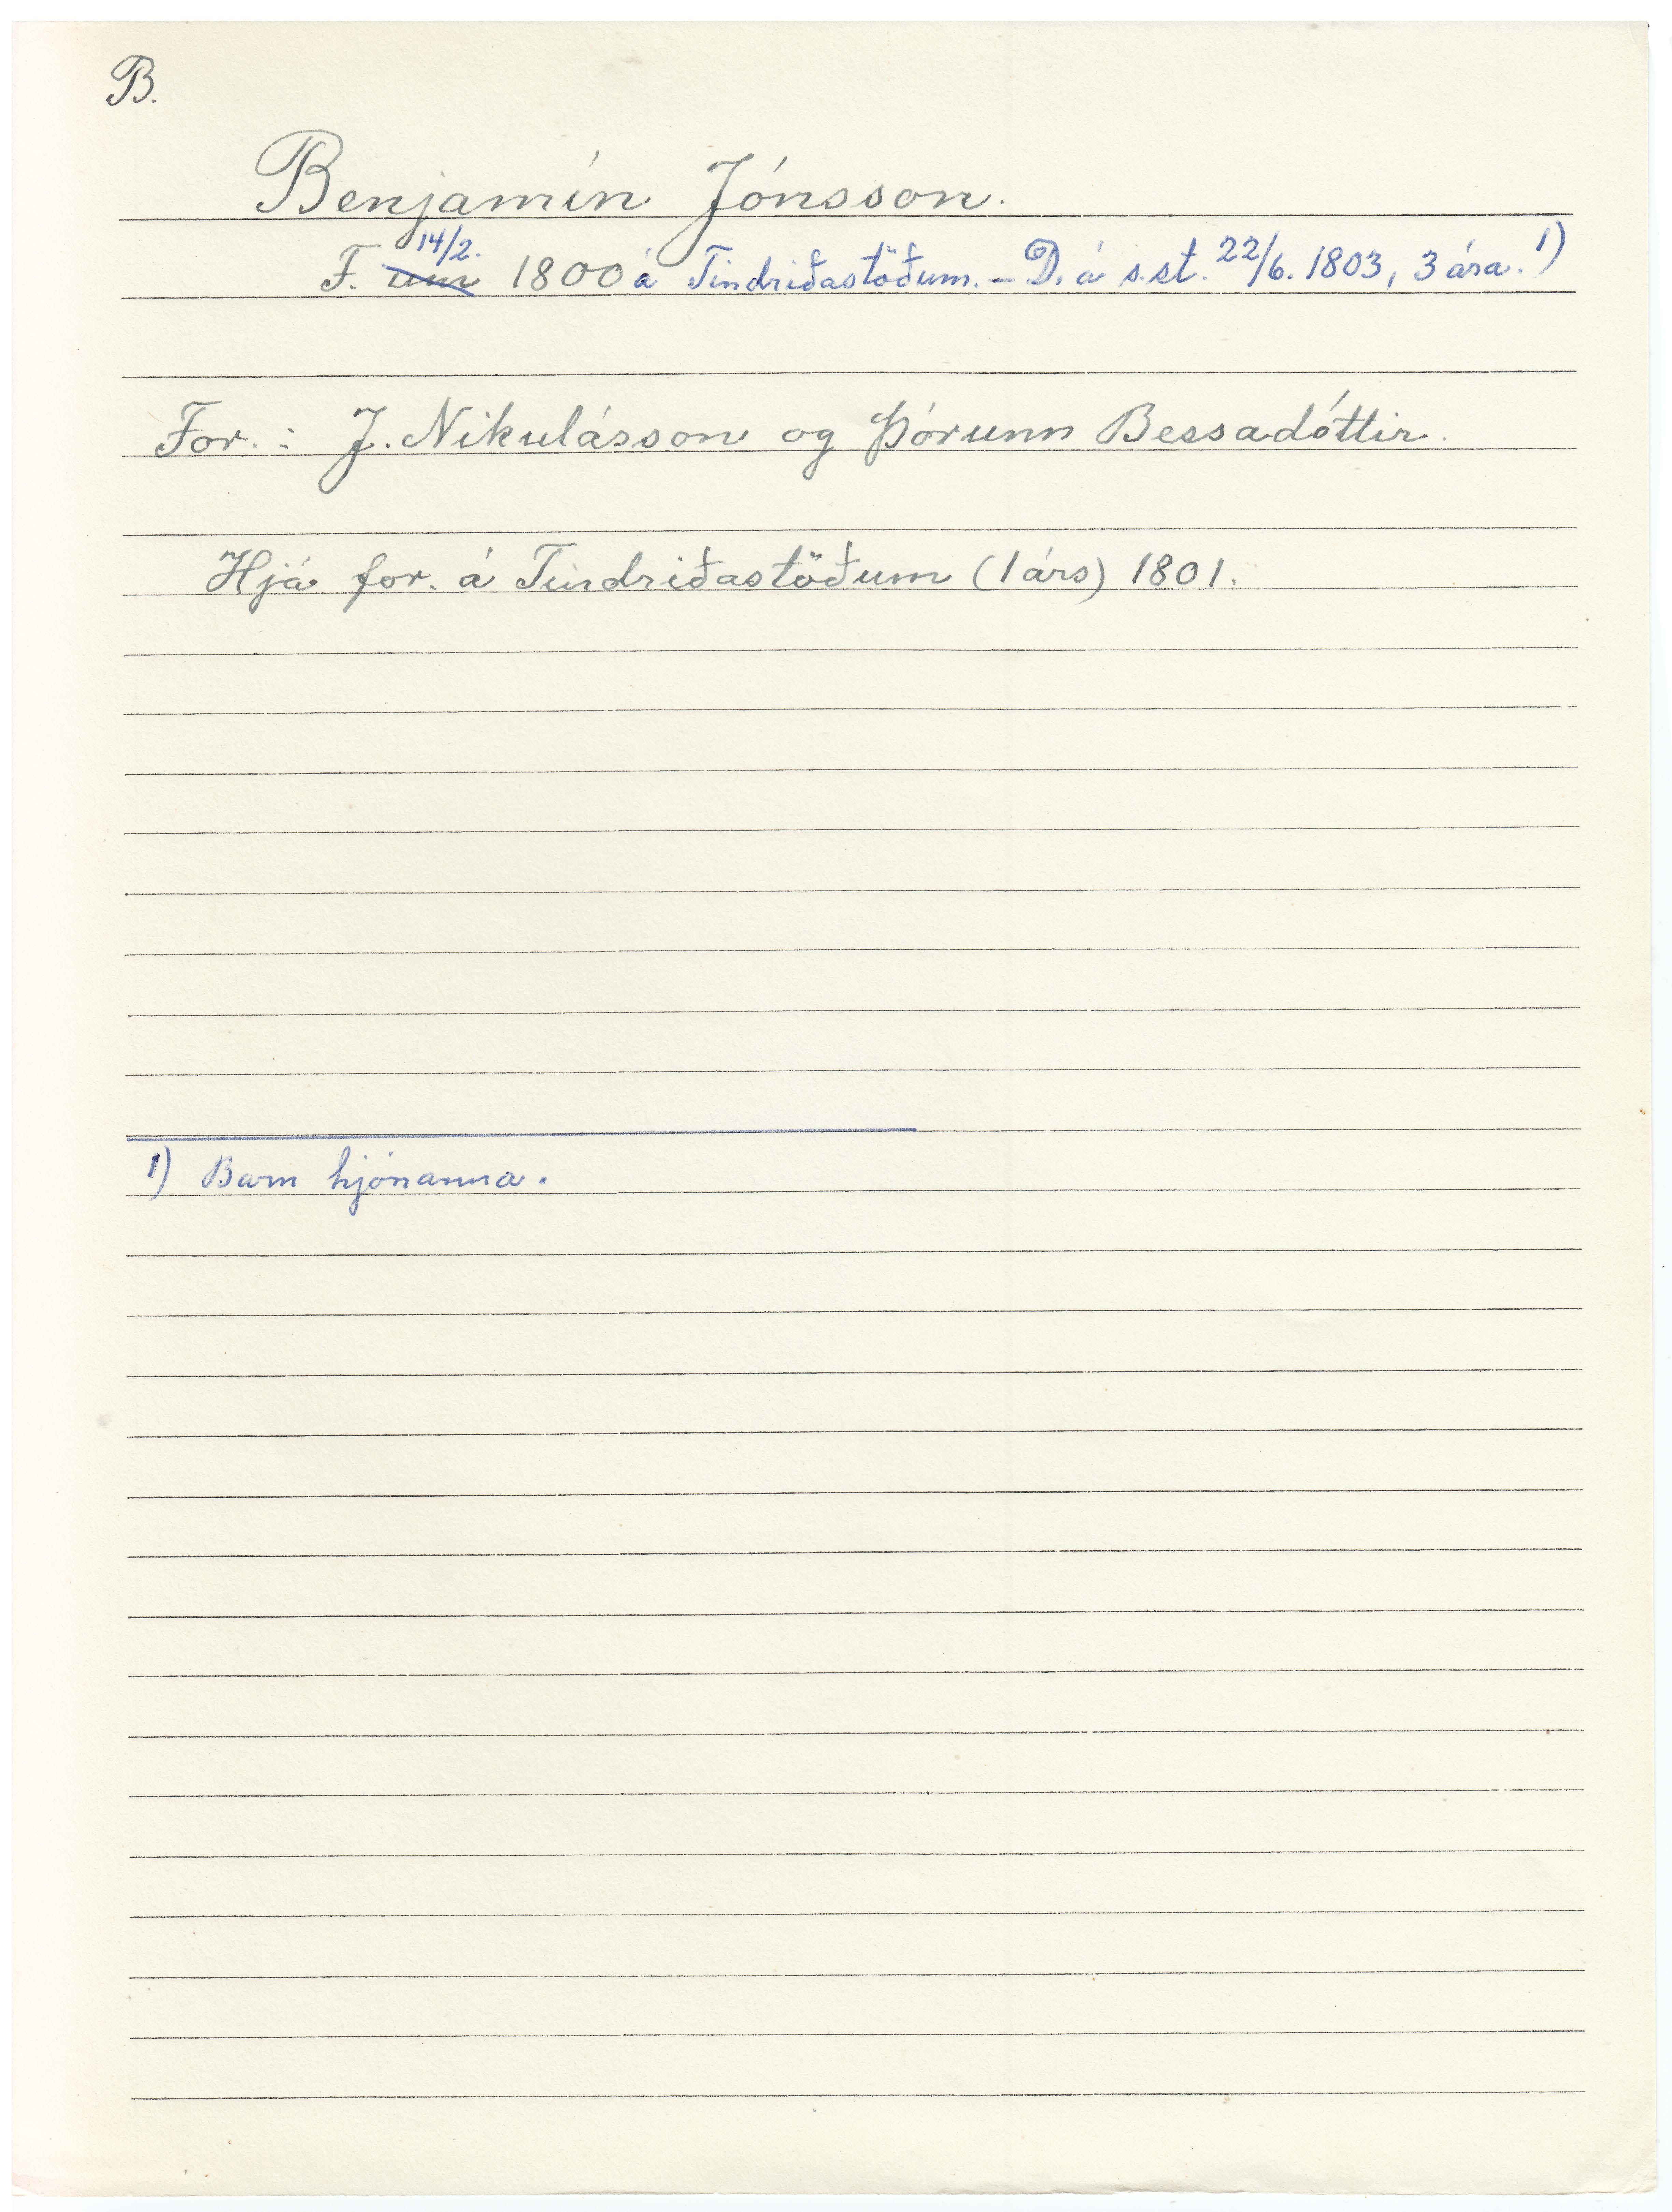 B.
Benjamín Jónsson.
14/2.
F. um 1800 á Tindriðastöðum. – D. á s.st. 22/6. 1803, 3 ára. 1)
For.: J. Nikulásson og Þórunn Bessadóttir.
Hjá for. á Tindriðastöðum (1 árs) 1801.
1) Barn hjónanna.